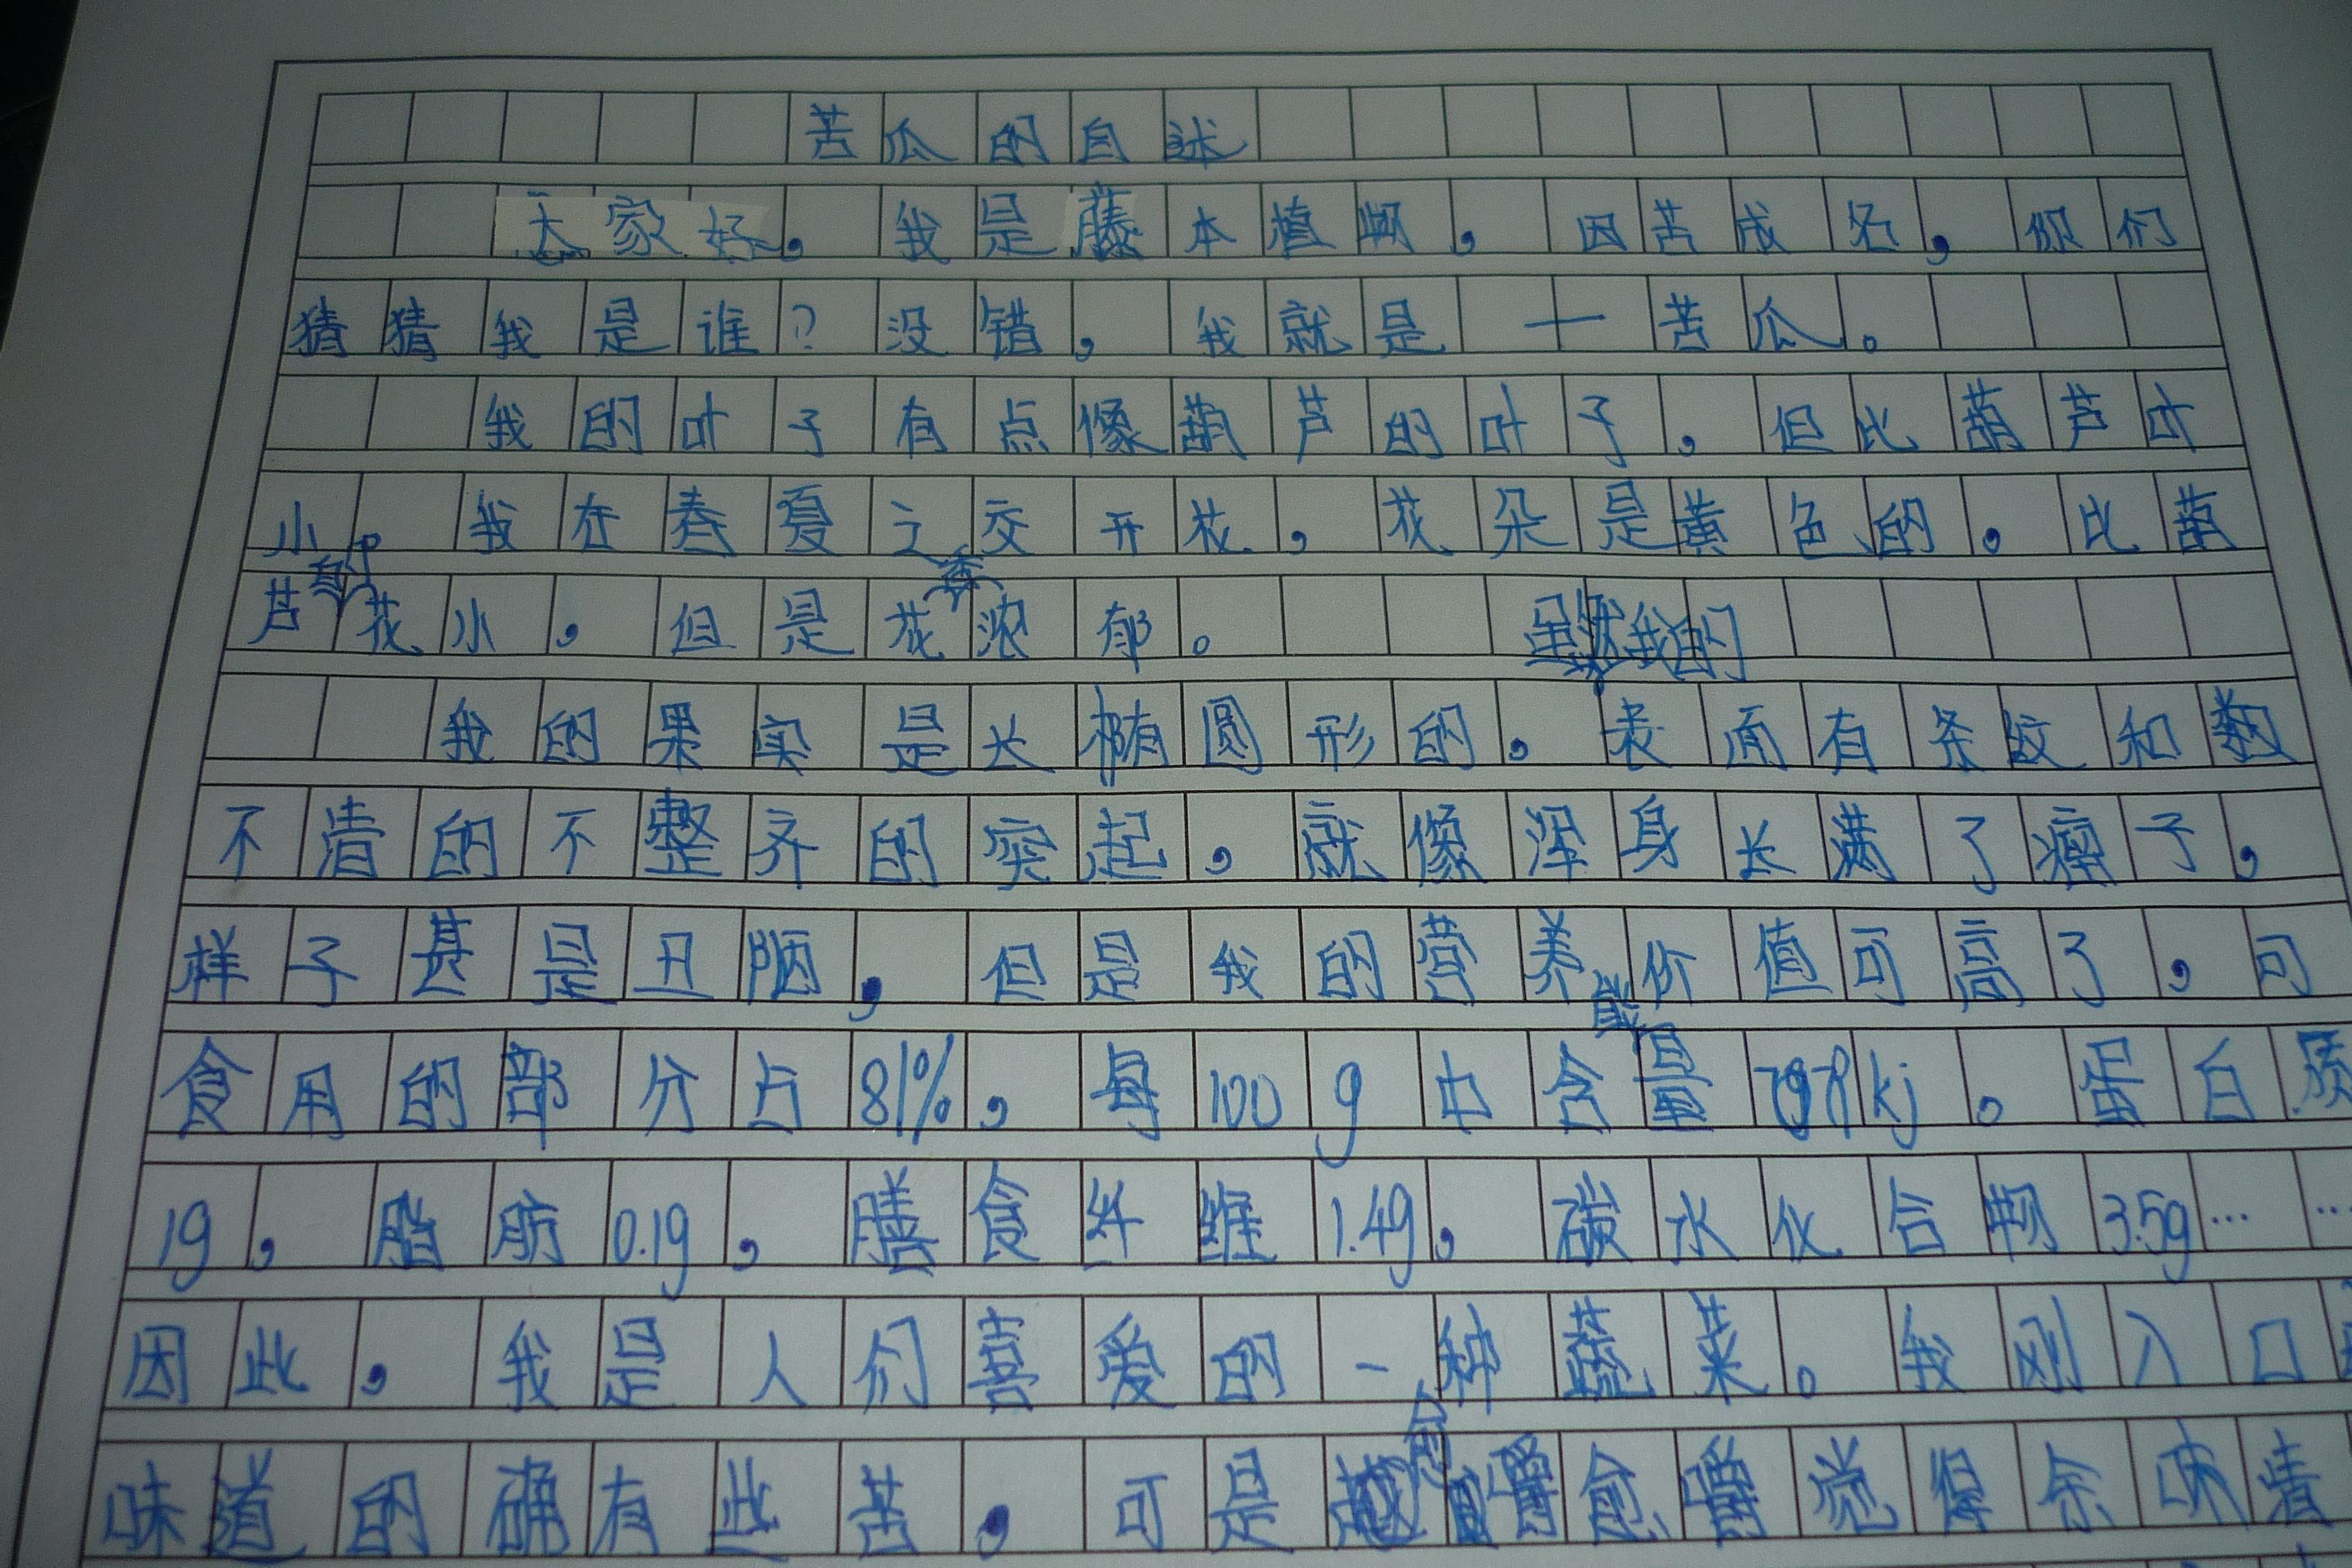 苦瓜的自述
大家好，我是藤本植物，因苦成名，你们
猜猜我是谁？没错，我就是一苦瓜。
我的叶子有点像葫芦的叶子，但比葫芦叶
小。我在春夏之交开花，花朵是黄色的。比葫
芦的花小，但是花香浓郁。虽然我的
我的果实是长椭圆形的，表面有条纹和数
不清的不整齐的突起，就像浑身长满了瘤子，
样子甚是丑陋，但是我的营养价值可高了，可
食用的部分占81%，每100g中含能量79kj。蛋白质
1g，脂肪0.1g，膳食纤维1.4g，碳水化合物3.5g……
因此，我是人们喜爱的一种蔬菜。我刚入口
味道的确有些苦，可是愈嚼愈嚼觉得余味清